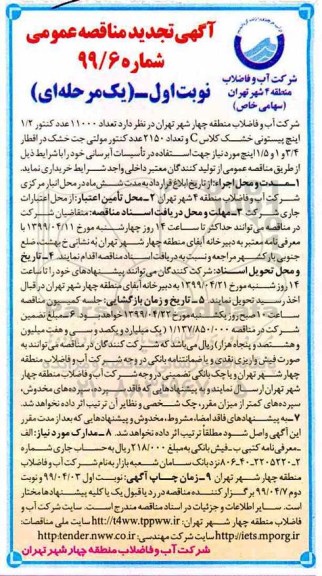 آگهی تجدید مناقصه عمومی
شماره ۹۹/۶
نوبت اول ـ (یک مرحله‌ای)
شرکت آب و فاضلاب
منطقه ۴ شهر تهران
(سهامی خاص)
شرکت آب و فاضلاب منطقه چهار شهر تهران در نظر دارد تعداد ۱۱۰۰۰ عدد کنتور ۱/۲
اینچ پیستونی خشک کلاس C و تعداد ۲۱۵۰ عدد کنتور مولتی جت خشک در اقطار
۳/۴ و ۱ و ۱/۵ اینچ مورد نیاز جهت استفاده در تأسیسات آبرسانی خود را با شرایط ذیل
از طریق مناقصه عمومی از تولید کنندگان معتبر داخلی واجد شرایط خریداری نماید.
۱ـ مدت و محل اجرا: از تاریخ ابلاغ قرارداد به مدت شش ماه در محل انبار مرکزی
شرکت آب و فاضلاب منطقه ۴ شهر تهران ۲ـ محل تأمین اعتبار: از محل اعتبارات
جاری شرکت ۳ـ مهلت و محل دریافت اسناد مناقصه: متقاضیان شرکت
در مناقصه می‌توانند حداکثر تا ساعت ۱۴ روز چهارشنبه مورخ ۱۳۹۹/۰۴/۱۱ با
معرفی‌نامه معتبر به دبیرخانه آبفای منطقه چهار شهر تهران به نشانی خ بهشت، ضلع
جنوبی پارکشهر مراجعه و نسبت به دریافت اسناد مناقصه اقدام نمایند. ۴ـ تاریخ
و محل تحویل اسناد: شرکت کنندگان می‌توانند پیشنهادهای خود را تا ساعت
۱۴ روز شنبه مورخ ۱۳۹۹/۰۴/۲۱ به دبیرخانه آبفای منطقه چهار شهر تهران در قبال
اخذ رسید تحویل نمایند. ۵ـ تاریخ و زمان بازگشایی: جلسه کمیسیون مناقصه
ساعت ۱۰ صبح روز یکشنبه مورخ ۱۳۹۹/۰۴/۲۲ خواهد بود. ۶ـ مبلغ تضمین
شرکت در مناقصه ۱/۱۳۷/۸۵۰/۰۰۰ (یک میلیارد و یکصد و سی و هفت میلیون
و هشتصد و پنجاه هزار) ریال می‌باشد که شرکت کنندگان در مناقصه می‌توانند به
صورت فیش واریزی نقدی و یا ضمانتنامه بانکی در وجه شرکت آب و فاضلاب منطقه
چهار شهر تهران و یا چک بانکی تضمینی در وجه شرکت آب و فاضلاب منطقه چهار
شهر تهران ارسال نمایند و به پیشنهادهایی که فاقد سپرده یا سپرده‌های مخدوش،
سپرده‌های کمتر از میزان مقرر، چک شخصی و نظایر آن ترتیب اثر داده نخواهد شد.
۷ـ به پیشنهادهای فاقد امضا، مشروط، مخدوش و پیشنهادهایی که بعد از مدت مقرر
این آگهی واصل شود مطلقاً ترتیب اثر داده نخواهد شد. ۸ـ مدارک مورد نیاز: الف
ـ معرفی‌نامه کتبی ب ـ فیش بانکی به مبلغ ۲۱۸/۰۰۰ ریال به حساب جاری شماره
نزد بانک سامان شعبه بازار به نام شرکت آب و فاضلاب
منطقه چهار شهر تهران ۹ـ زمان چاپ آگهی: نوبت اول ۹۹/۰۴/۰۳ و نوبت
دوم ۹۹/۰۴/۷ برگزار کننده مناقصه در رد یا قبول یک یا کلیه پیشنهادها مختار
است. سایر اطلاعات و جزئیات در اسناد مناقصه مندرج است. سایت شرکت آب و
فاضلاب منطقه چهار شهر تهران: http://t4ww.tpww.ir سایت ملی مناقصات:
http://iets.mporg.ir سایت شرکت مهندسی: http:tender.nww.co.ir
شرکت آب و فاضلاب منطقه چهار شهر تهران